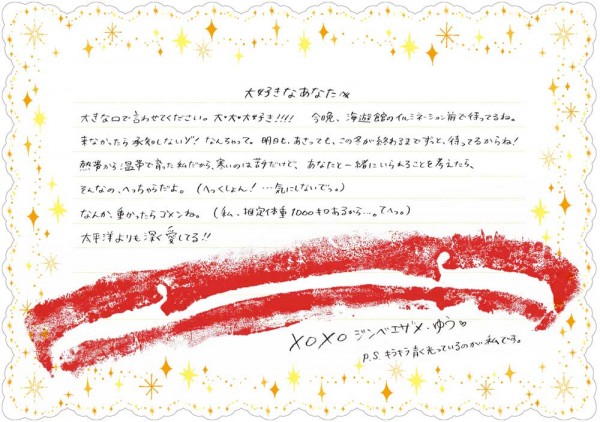 大好きなあなたへ
大きな口で言わせてください。大・大・大好き!!!! 今晩、海遊館のイルミネーション前で待ってるね。
来なかったら承知しないゾ! なんちゃって。明日も、あさっても、この冬が終わるまでずっと、待ってるからね!
熱帯から温帯で育った私だから、寒いのは苦手だけど、あなたと一緒にいられることを考えたら、
そんなの、へっちゃらだよ。(へっくしょん! …気にしないでっ。)
なんか、重かったらゴメンね。(私、推定体重1000キロあるから…。てへっ。)
太平洋よりも深く愛してる!!
XOXO ジンベエザメ・ゆう♡
P.S. キラキラ青く光っているのが私です。